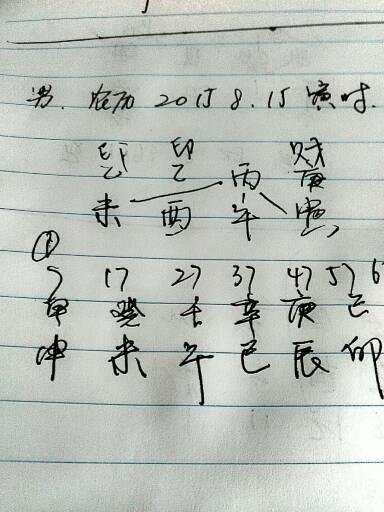 男. 农历 2015 8.15 寅时.
印 印 财
乙 乙 丙 庚
未 酉 午 寅
①
7 17 27 37 47 57 6
甲 癸 壬 辛 庚 己
申 未 午 巳 辰 卯